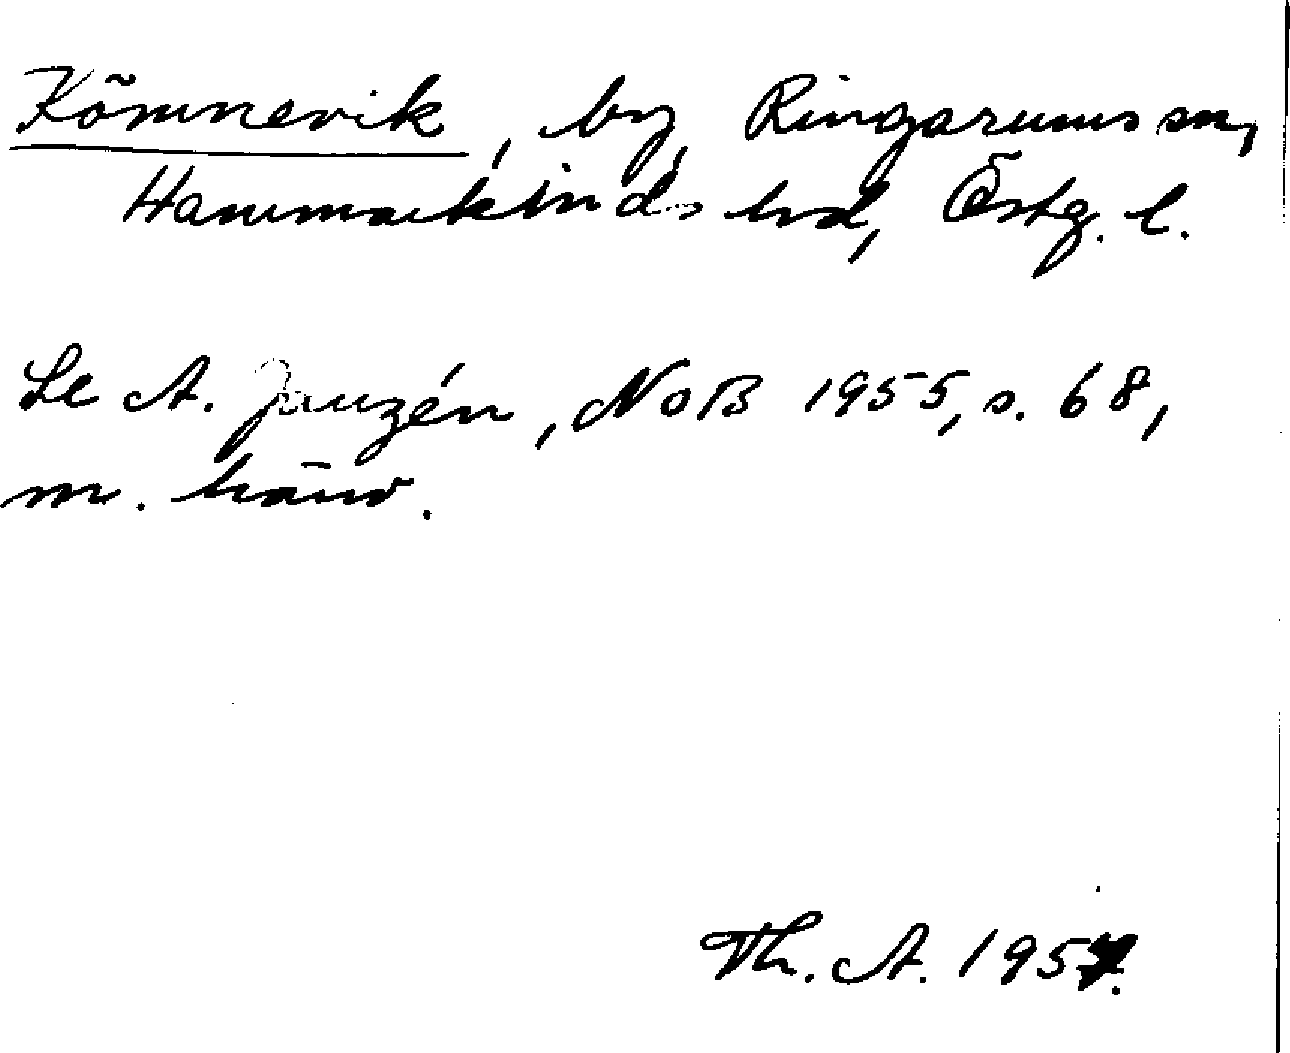 Kömnevik, by, Ringarums sn,
Hammarkinds hd, Östg. l.
Se A. Janzén, NoB 1955, s. 68,
m. hänv.
Th. A. 1957.